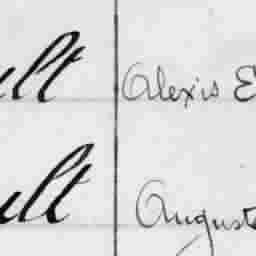 ult Alexis E
ult August